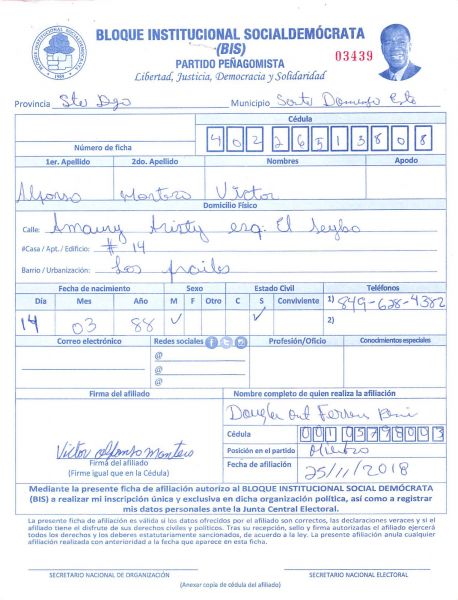 BLOQUE INSTITUCIONAL SOCIALDEMÓCRATA
(BIS)
PARTIDO PEÑAGOMISTA
Libertad, Justicia, Democracia y Solidaridad
03439
Provincia Sto Dgo Municipio Santo Domingo Este
Cédula
Número de ficha 4 0 2 2 6 5 1 3 8 0 8
1er. Apellido 2do. Apellido Nombres Apodo
Alfonso Montero Víctor
Domicilio Físico
Calle: Amaury Aristy esq. El Seybo
#Casa / Apt. / Edificio: # 14
Barrio / Urbanización: Los frailes
Fecha de nacimiento Sexo Estado Civil Teléfonos
Día Mes Año M F Otro C S Conviviente 1) 849-628-4382
14 03 88 ✓ ✓ 2)
Correo electrónico Redes sociales Profesión/Oficio Conocimientos especiales
@
@
@
Firma del afiliado Nombre completo de quien realiza la afiliación
Cédula
Víctor Alfonso Montero Posición en el partido
Firma del afiliado
(Firme igual que en la Cédula) Fecha de afiliación 25/11/2018
Mediante la presente ficha de afiliación autorizo al BLOQUE INSTITUCIONAL SOCIAL DEMÓCRATA
(BIS) a realizar mi inscripción única y exclusiva en dicha organización política, así como a registrar
mis datos personales ante la Junta Central Electoral.
La presente ficha de afiliación es válida si los datos ofrecidos por el afiliado son correctos, las declaraciones veraces y si el
afiliado tiene el disfrute de sus derechos civiles y politicos. Tras su recepción, sello y firma autorizada el afiliado ejercerá
todos los derechos y los deberes estatutariamente sancionados, de acuerdo a la ley. La presente afiliación anula cualquier
afiliación realizada con anterioridad a la fecha que aparece en esta ficha.
SECRETARIO NACIONAL DE ORGANIZACIÓN SECRETARIO NACIONAL ELECTORAL
(Anexar copia de cédula del afiliado)